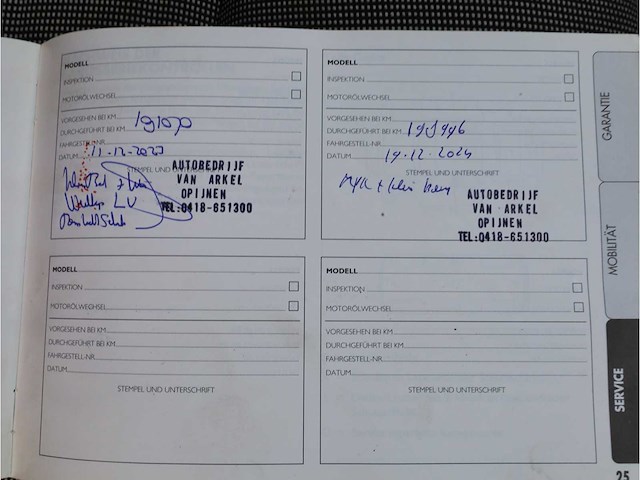 MODELL
INSPEKTION
MOTORÖLWECHSEL
VORGESEHEN BEI KM
DURCHGEFÜHRT BEI KM 191070
FAHRGESTELL-NR.
DATUM 11-12-2023
STEMPEL UND UNTERSCHRIFT
AUTOBEDRIJF
VAN ARKEL
OPIJNEN
TEL:0418-651300
MODELL
INSPEKTION
MOTORÖLWECHSEL
VORGESEHEN BEI KM
DURCHGEFÜHRT BEI KM
FAHRGESTELL-NR.
DATUM 19-12-2024
STEMPEL UND UNTERSCHRIFT
AUTOBEDRIJF
VAN ARKEL
OPIJNEN
TEL:0418-651300
MODELL
INSPEKTION
MOTORÖLWECHSEL
VORGESEHEN BEI KM
DURCHGEFÜHRT BEI KM
FAHRGESTELL-NR.
DATUM
STEMPEL UND UNTERSCHRIFT
MODELL
INSPEKTION
MOTORÖLWECHSEL
VORGESEHEN BEI KM
DURCHGEFÜHRT BEI KM
FAHRGESTELL-NR.
DATUM
STEMPEL UND UNTERSCHRIFT
GARANTIE
MOBILITÄT
SERVICE
25